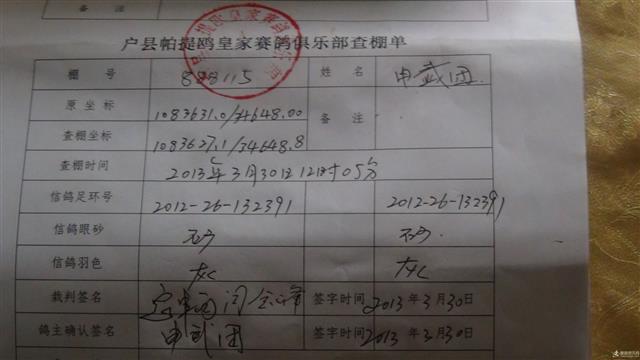 备注
户县帕提鸥皇家赛鸽俱乐部查棚单
棚号 888115 姓名 申武团
原坐标 1083631.0/34648.00 备注
查棚坐标 1083627.1/34648.8
查棚时间 2013年3月30日12时05分
信鸽足环号 2012-26-132391 2012-26-132391
信鸽眼砂 砂 砂
信鸽羽色 灰 灰
裁判签名 签字时间 2013年3月30日
鸽主确认签名 申武团 签字时间 2013年3月30日